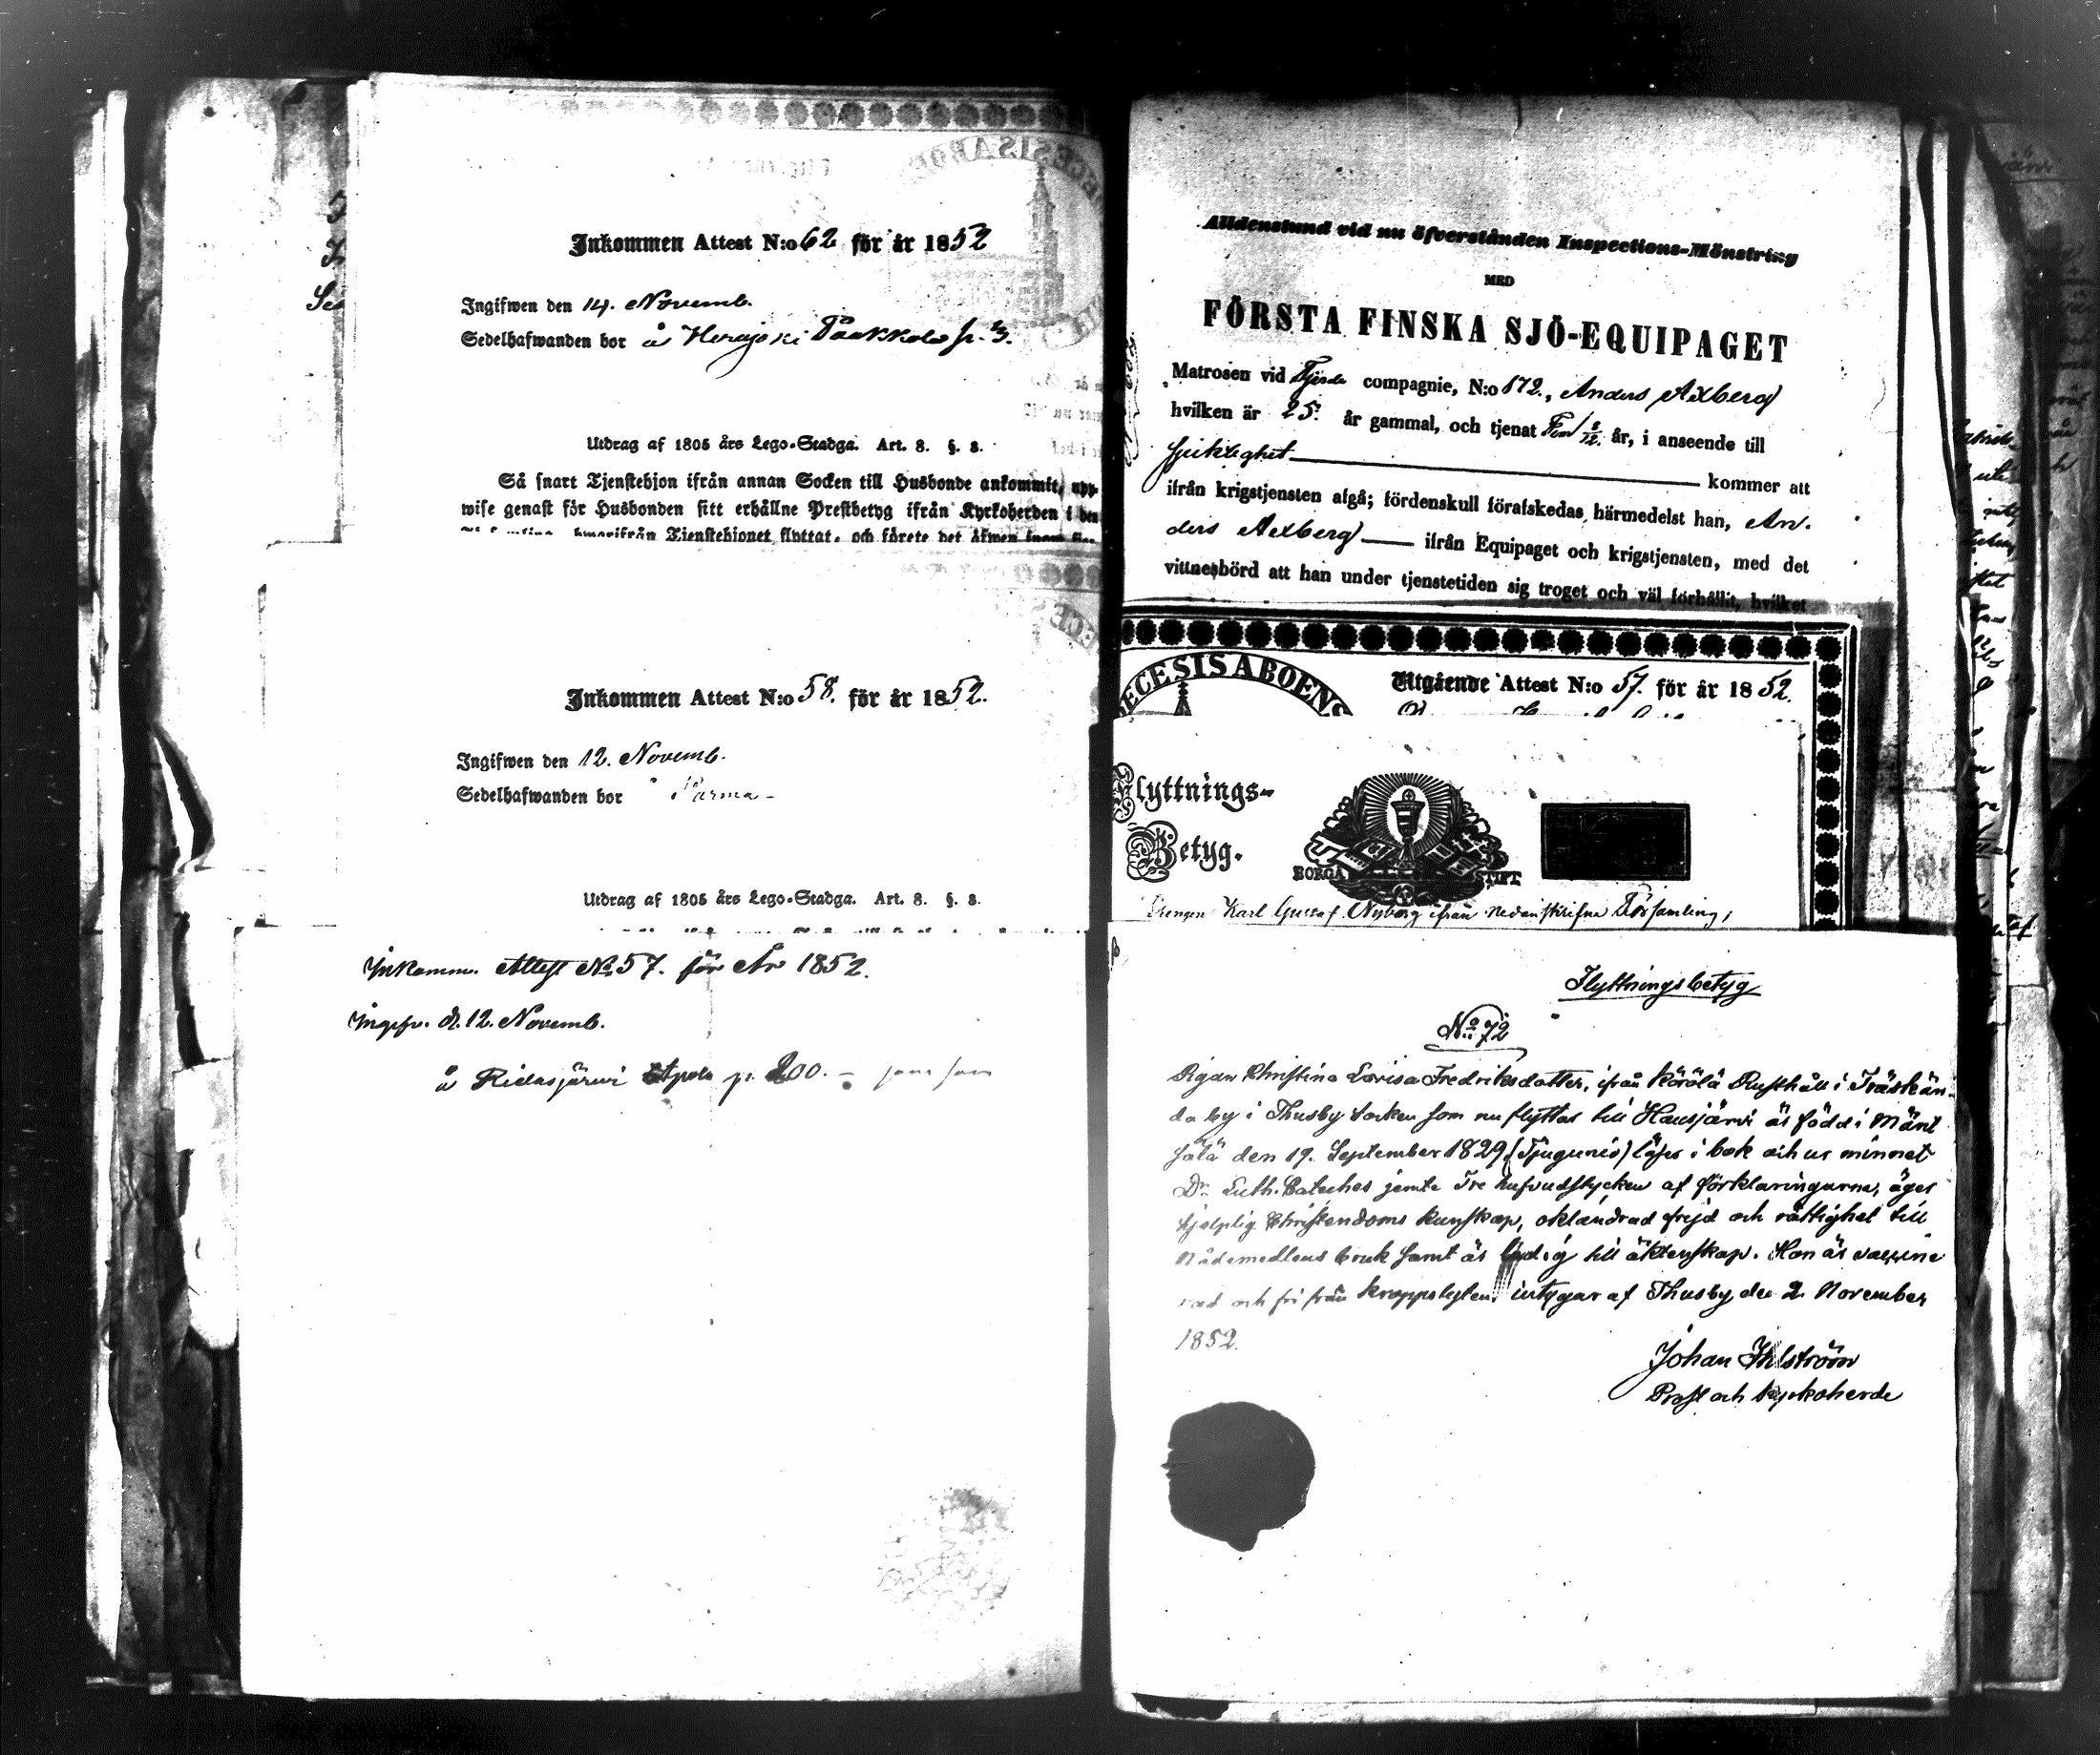 Inkommen Attest N:o 62 för år 1852
Ingifwen den 14. Novemb.
Sedelhafwanden bor å Herajoki
Utdrag af 1805 års Lego-Stadga. Art. 8. §. 8.
Så snart Tjenstehjon ifrån annan Socken till Husbonde ankommit, upp-
wise genast för Husbonden sitt erhållne Prestbetyg ifrån Kyrkoherden i den
hwarifrån Tjenstehjonet flyttat, och förete det äfwen
Inkommen Attest N:o 58. för år 1852.
Ingifwen den 12. Novemb.
Sedelhafwanden bor
Utdrag af 1805 års Lego-Stadga. Art. 8. §. 8.
Inkomm. Attest No 57. för År 1852.
Ingifv. d. 12. Novemb.
å Ridasjärwi
Alldenstund vid nu öfverstånden Inspections-Mönstring
MED
FÖRSTA FINSKA SJÖ-EQUIPAGET
Matrosen vid Fjerde compagnie, N:o 172., Anders Axberg
hvilken är 25 år gammal, och tjenat Fem år, i anseende till
sjuklighet kommer att
ifrån krigstjensten afgå; fördenskull förafskedas härmedelst han, An-
ders Axberg ifrån Equipaget och krigstjensten, med det
vittnesbörd att han under tjenstetiden sig troget och väl förhållit, hvilket
ECESIS ABOENS
Utgående Attest N:o 57. för år 1852.
Flyttnings-
Betyg.
BORGÅ STIFT
Drengen Karl Gustaf Nyberg ifrån nedanskrifne Församling,
Flyttningsbetyg
No 72
Pigan Christina Lovisa Fredriksdotter, ifrån Körölä Rusthåll i Träskän-
da by i Thusby Socken som nu flyttar till Hausjärvi är född i Mänt-
sälä den 19. September 1829 (Tjugunio) läser i bok och ur minnet
Dr. Luth. Cateches jemte Tre hufvudstycken af förklaringarna, äger
hjelplig Christendoms kunskap, oklandrad frejd och rättighet till
Nådemedlens bruk samt är ledig till äktenskap. Hon är vaccine-
rad och fri från kroppslyten, intygar af Thusby den 2. November
1852.
Johan Ihlström
Prost och kyrkoherde